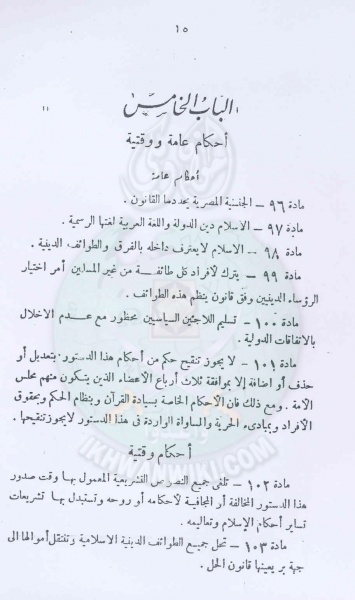 ١٥
الباب الخامس
١١
أحكام عامة ووقتية
أحكام عامة
مادة ٩٦ – الجنسية المصرية يحددها القانون .
مادة ٩٧ – الاسلام دين الدولة واللغة العربية لغتها الرسمية .
مادة ٩٨ – الاسلام لا يعترف داخله بالفرق والطوائف الدينية .
مادة ٩٩ – يترك لأفراد كل طائفة من غير المسلمين أمر اختيار
الرؤساء الدينيين وفق قانون ينظم هذه الطوائف .
مادة ١٠٠ – تسليم اللاجئين السياسيين محظور مع عدم الاخلال
بالاتفاقات الدولية .
مادة ١٠١ – لا يجوز تنقيح حكم من أحكام هذا الدستور بتعديل أو
حذف أو اضافة إلا بموافقة ثلاث أرباع الأعضاء الذين يتكون منهم مجلس
الأمة . ومع ذلك فان الأحكام الخاصة بسيادة القرآن وبنظام الحكم وبحقوق
الأفراد وبمبادىء الحرية والمساواة الواردة في هذا الدستور لا يجوز تنقيحها .
أحكام وقتية
مادة ١٠٢ – تلغى جميع النصوص التشريعية المعمول بها وقت صدور
هذا الدستور المخالفة أو المجافية لأحكامه أو روحه وتستبدل بها تشريعات
تساير أحكام الإسلام وتعاليمه .
مادة ١٠٣ – تحل جميع الطوائف الدينية الاسلامية وتنتقل أموالها الى
جهة بر يعينها قانون الحل .
IKHWANWIKI.COM